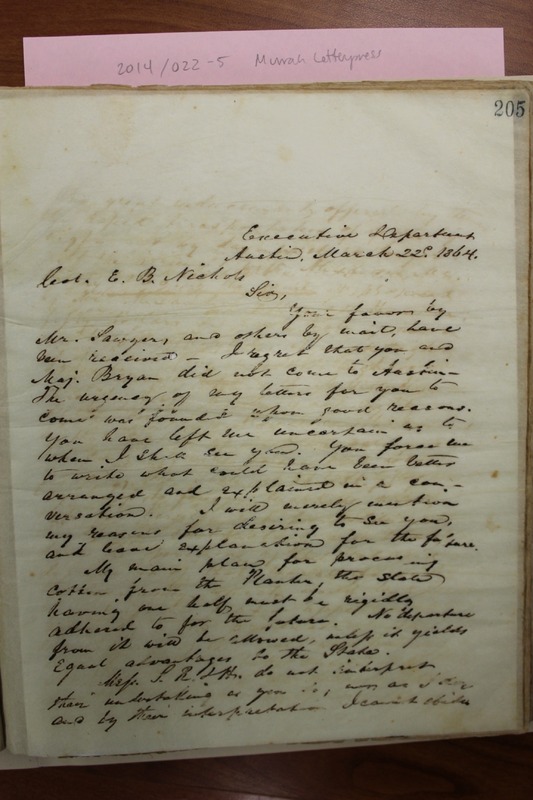 2014/022-5 Murrah Letterpress
205
Executive Department
Austin, March 22d. 1864.
Col. E. B. Nichols
Sir,
Your favor by
Mr. Sawyer, and others by mail, have
been received – I regret that you and
Maj. Bryan did not come to Austin –
The urgency of my letters for you to
come was founded upon good reasons.
You have left me uncertain as to
when I shall see you. You force me
to write what could have been better
arranged and explained in a con-
versation. I will merely mention
my reasons for desiring to see you,
and leave explanation for the future.
My main plan for procuring
cotton from the Planter, the State
having one half, must be rigidly
adhered to for the future. No departure
from it will be allowed, unless it yields
Equal advantages to the State.
Mess. do not interpret
their undertaking as you do, nor as I do
and by their interpretation I cannot abide